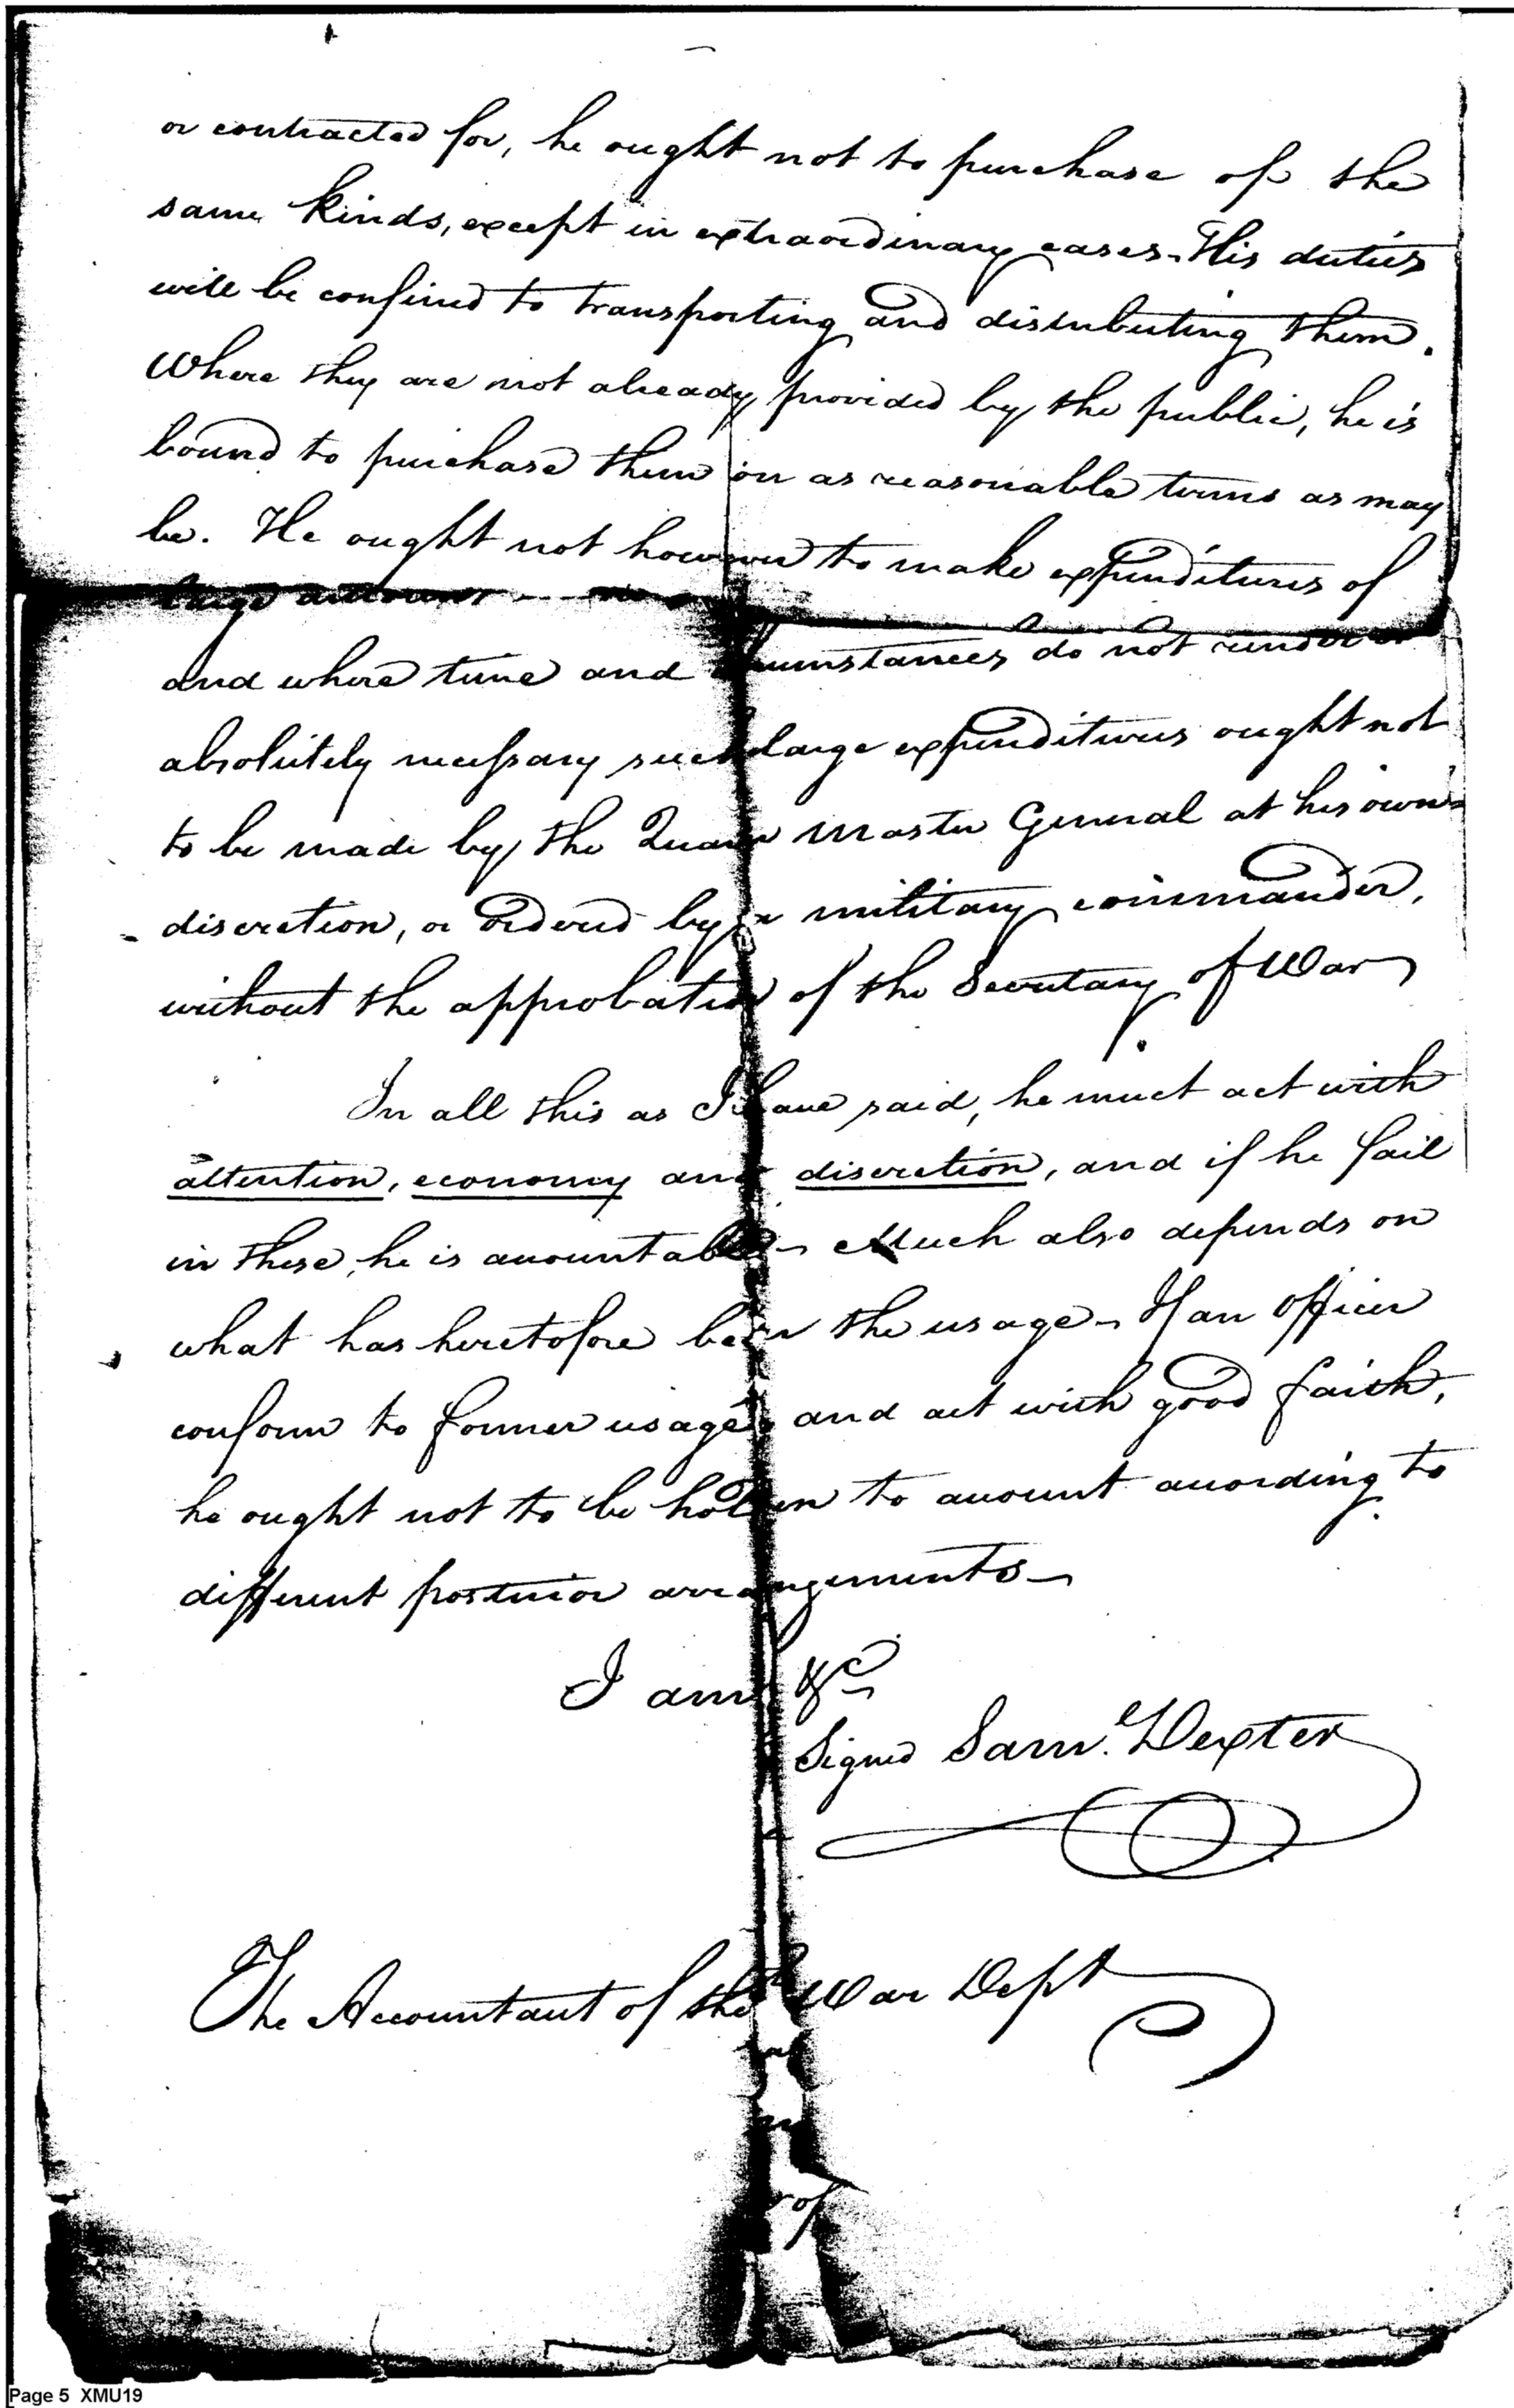 or contracted for, he ought not to purchase of the
same kinds, except in extraordinary cases. His duties
will be confined to transporting and distributing them.
Where they are not already provided by the public, he is
bound to purchase them on as reasonable terms as may
be. He ought not however to make expenditures of
large amount
and where time and circumstances do not render it
absolutely necessary such large expenditures ought not
to be made by the Quarter Master General at his own
discretion, or ordered by a military commander,
without the approbation of the Secretary of War
In all this as I have said, he must act with
attention, economy and discretion, and if he fail
in these, he is accountable - Much also depends on
what has heretofore been the usage - If an officer
conform to former usage, and act with good faith,
he ought not to be holden to account according to
different posterior arrangements -
I am &c
Signed Saml. Dexter
The Accountant of the War Dept
Page 5 XMU19